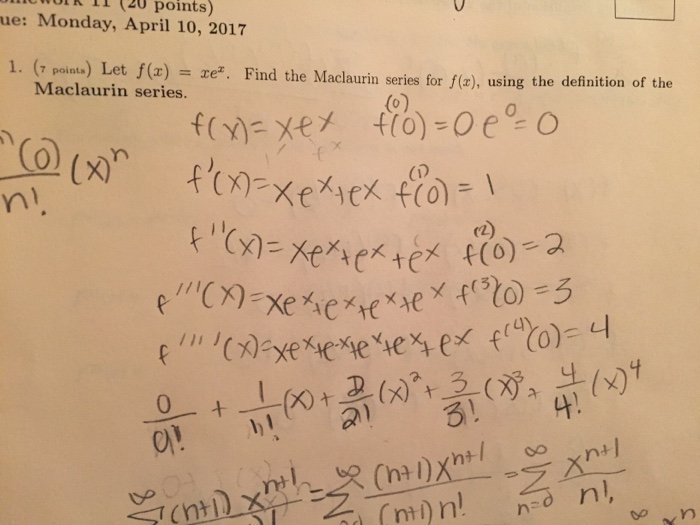 11 (20 points)
ue: Monday, April 10, 2017
1. (7 points) Let f(x) = xeˣ. Find the Maclaurin series for f(x), using the definition of the
Maclaurin series.
f(x)=xeˣ f⁽⁰⁾(0)=0e⁰=0
ⁿ(0)/n! (x)ⁿ
f'(x)=xeˣ+eˣ f⁽¹⁾(0)=1
f''(x)=xeˣ+eˣ+eˣ f⁽²⁾(0)=2
f'''(x)=xeˣ+eˣ+eˣ+eˣ f⁽³⁾(0)=3
f''''(x)=xeˣ+eˣ+eˣ+eˣ+eˣ f⁽⁴⁾(0)=4
0/0! + 1/1!(x) + 2/2!(x)² + 3/3!(x)³ + 4/4!(x)⁴
∞ Σ (n+1) xⁿ⁺¹ = ∞ Σ (n+1)xⁿ⁺¹/(n+1)n! = ∞ Σ n=0 xⁿ⁺¹/n!